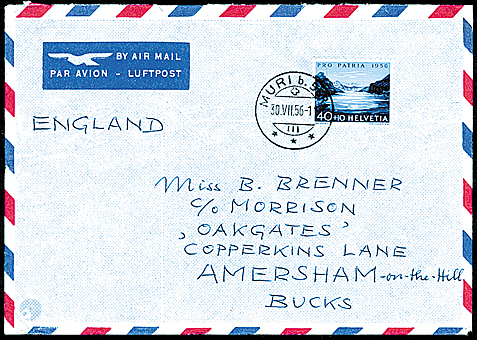 BY AIR MAIL
PAR AVION - LUFTPOST
PRO PATRIA 1956
MURI b.
30.VII.56-1
III
40+10 HELVETIA
ENGLAND
Miss B. BRENNER
c/o MORRISON
‚OAKGATES’
COPPERKINS LANE
AMERSHAM-on-the-Hill
BUCKS